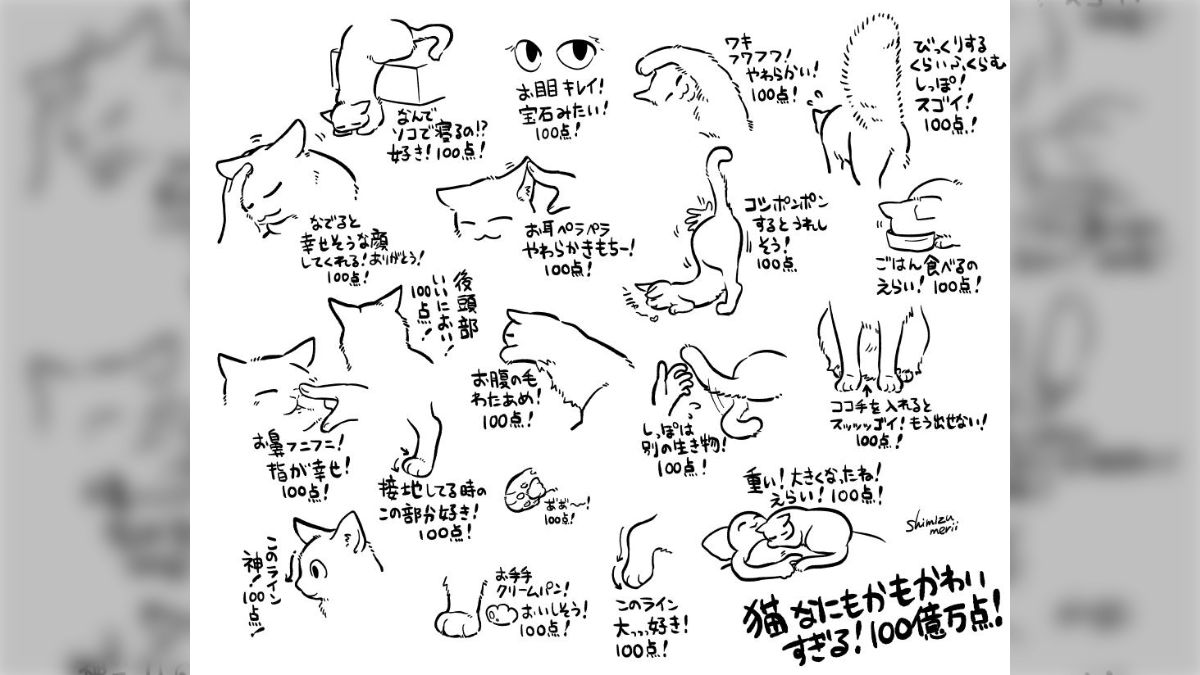 なんで
ソコで寝るの!?
好き!100点!
お目目キレイ!
宝石みたい!
100点!
ワキ
フワフワ!
やわらかい!
100点!
びっくりする
くらいふくらむ
しっぽ!
スゴイ!
100点!
なでると
幸せそうな顔
してくれる!ありがとう!
100点!
お耳ペラペラ
やわらかきもちー!
100点!
コシポンポン
するとうれし
そう!
100点
ごはん食べるの
えらい!100点!
後頭部
いいにおい!
100点!
お腹の毛
わたあめ!
100点!
しっぽは
別の生き物!
100点!
ココ手を入れると
スッッッゴイ!もう出せない!
100点!
お鼻フニフニ!
指が幸せ!
100点!
接地してる時の
この部分好き!
100点!
あぁ〜!
100点!
重い!大きくなったね!
えらい!100点!
shimizu
merii
このライン
神!100点!
お手手
クリームパン!
おいしそう!
100点!
このライン
大っっ好き!
100点!
猫なにもかもかわい
すぎる!100億万点!